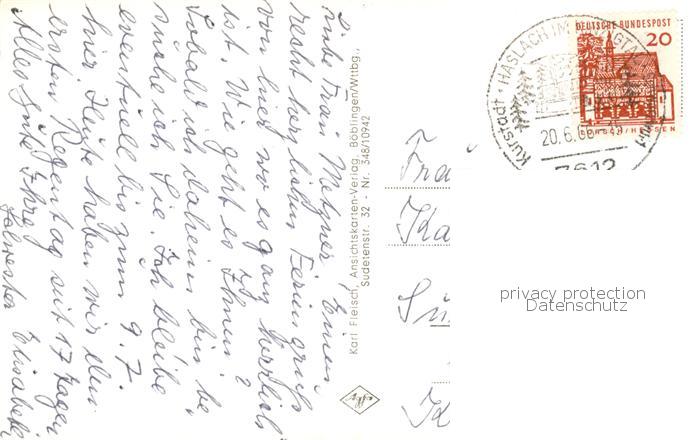 Liebe Frau Metzner, Einen
recht herzlichen Feriengruß
von hier wo es ganz herrlich
ist. Wie geht es Ihnen?
Sobald ich daheim bin be
suche ich Sie. Ich bleibe
eventuell bis zum 9.7.
hier. Heute haben wir den
ersten Regentag seit 17 Tagen
Alles Gute Ihre
Schwester Elisabeth
Karl Fleisch, Ansichtskarten-Verlag, Böblingen/Wttbg.,
Sudetenstr. 32 - Nr. 348/10942
Frau
DEUTSCHE BUNDESPOST
20
LORSCH/HESSEN
Kurstadt · HASLACH IM
20.6.66
7612
privacy protection
Datenschutz